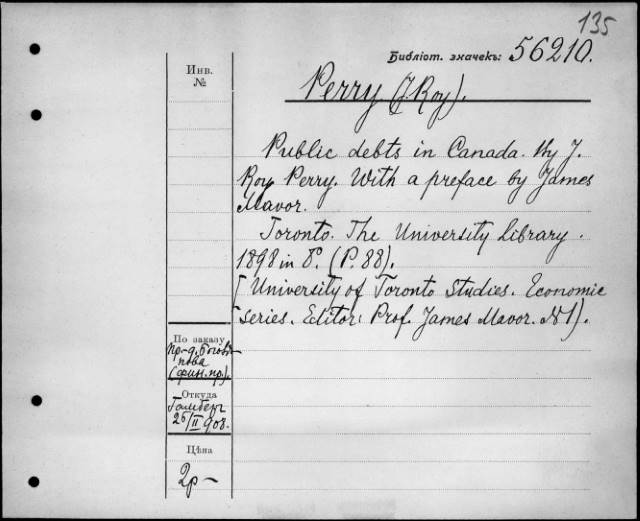 135
Библіот. значекъ: 56210.
Инв.
№
Perry (J. Roy).
Public debts in Canada. By J.
Roy Perry. With a preface by James
Mavor.
Toronto. The University Library.
1898 in 8°. (P. 88).
[University of Toronto Studies. Economic
series. Editor: Prof. James Mavor. №1).
По заказу
пр-д.
(фин. пр.).
Откуда
26/II 908.
Цѣна
2р-